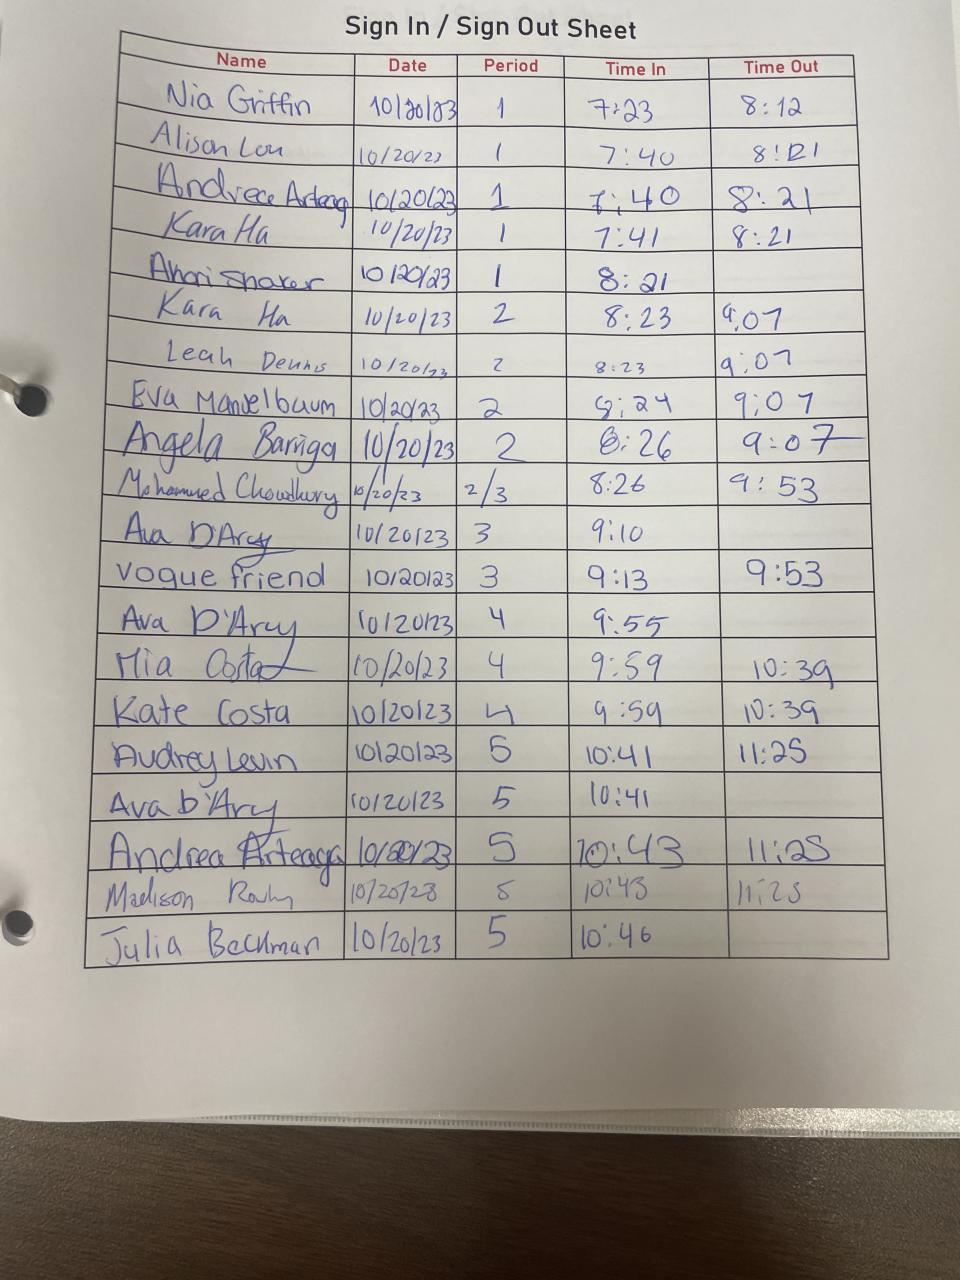 Sign In / Sign Out Sheet
Name Date Period Time In Time Out
Nia Griffin 10/20/23 1 7:23 8:12
Alison Lou 10/20/23 1 7:40 8:21
Andreea Arteag 10/20/23 1 7:40 8:21
Kara Ha 10/20/23 1 7:41 8:21
10/20/23 1 8:21
Kara Ha 10/20/23 2 8:23 9:07
Leah Dennis 10/20/23 2 8:23 9:07
Eva Mandelbaum 10/20/23 2 8:24 9:07
Angela Barriga 10/20/23 2 8:26 9:07
Mohammed Chowdhury 10/20/23 2/3 8:26 9:53
Ava D'Arcy 10/20/23 3 9:10
Vogue friend 10/20/23 3 9:13 9:53
Ava D'Arcy 10/20/23 4 9:55
Mia Costa 10/20/23 4 9:59 10:39
Kate Costa 10/20/23 4 9:59 10:39
Audrey Levin 10/20/23 5 10:41 11:25
Ava D'Arcy 10/20/23 5 10:41
Andrea Arteaga 10/20/23 5 10:43 11:25
Madison 10/20/23 5 10:43 11:25
Julia Beckman 10/20/23 5 10:46